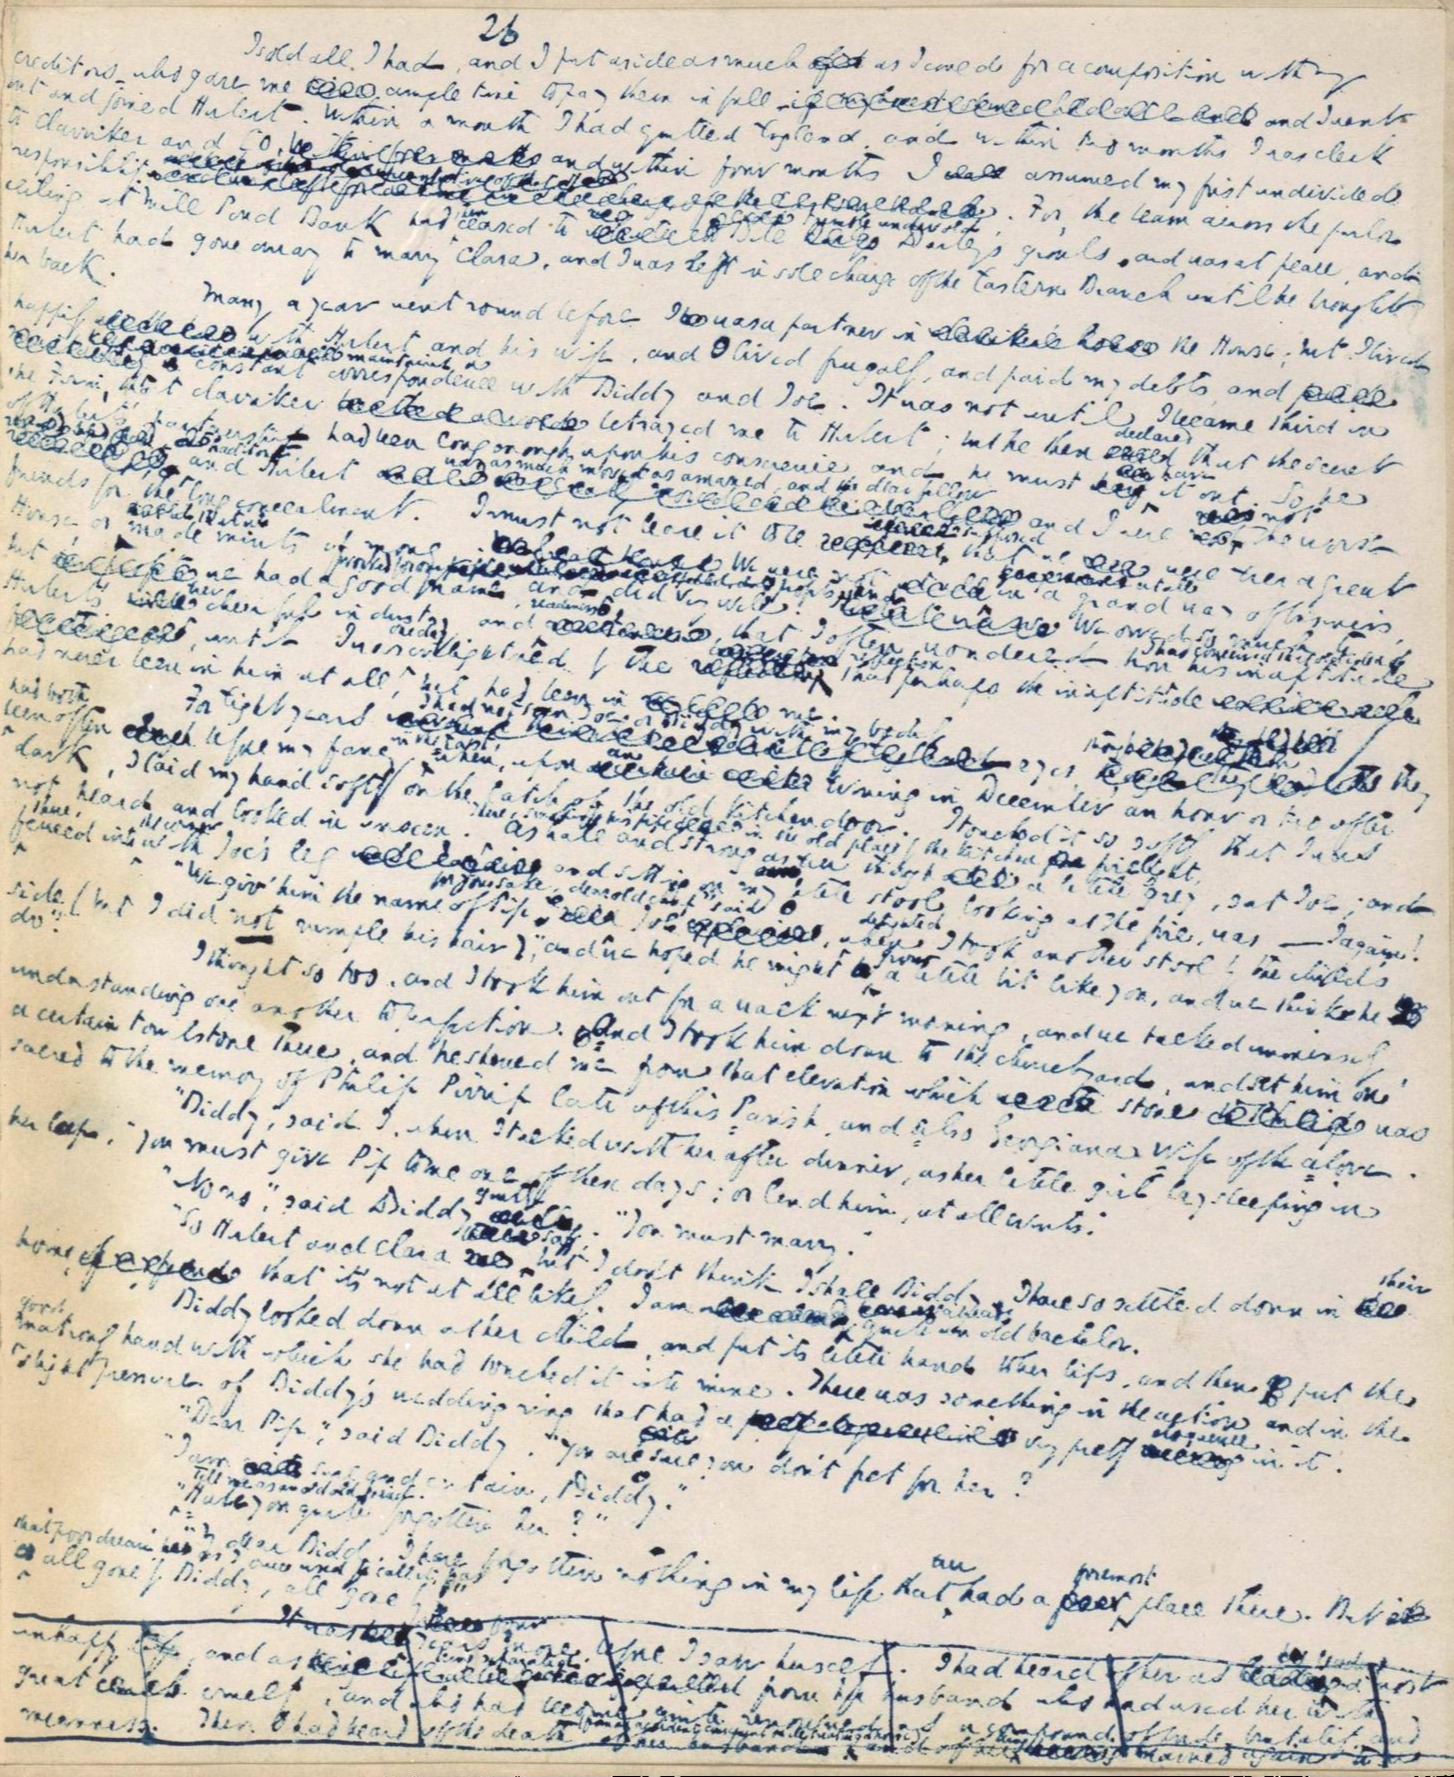 26
I sold all I had, and I put aside as much as I could for a composition with my
creditors, who gave me ample time to pay them in full and I went
out and joined Herbert. Within a month I had quitted England, and within two months I was clerk
to Clarriker and Co, and within four months I assumed my first undivided
responsibility. For, the beam across the parlor
ceiling at Mill Pond Bank had then ceased to tremble under old Bill Barley's growls and was at peace, and
Herbert had gone away to marry Clara, and I was left in sole charge of the Eastern Branch until he brought
her back.
Many a year went round before I was a partner in the House; but I lived
happily with Herbert and his wife, and lived frugally, and paid my debts, and
maintained a constant correspondence with Biddy and Joe. It was not until I became third in
the Firm, that Clarriker betrayed me to Herbert; but he then declared that the secret
of Herbert's partnership had been long enough upon his conscience, and he must tell it out. So he
told it, and Herbert was as much moved as amazed, and the dear fellow and I were not the worse
friends for the long concealment. I must not leave it to be supposed that we were ever a great
House or made mints of money. We were not in a grand way of business,
but we had a good name, and worked for our profits, and did very well. We owed so much to
Herbert's ever cheerful industry and readiness, that I often wondered how I had conceived the old idea of his inaptitude
until I was one day enlightened by the reflection, that perhaps the inaptitude
had never been in him at all, but had been in me.
For Eight years I had not seen Joe or Biddy with my bodily eyes though they
had both been often before my fancy in the East, when, upon an evening in December an hour or two after
dark, I laid my hand softly on the latch of the old kitchen door. I touched it so softly that I was
not heard, and looked in unseen. There, smoking his pipe in the old place by the kitchen firelight,
as hale and strong as ever though a little grey, sat Joe; and there,
fenced into the corner with Joe's leg and sitting on my own little stool looking at the fire, was — I again!
"We giv' him the name of Pip for your sake, dear old chap," said Joe, delighted when I took another stool by the child's
side (but I did not rumple his hair), "and we hoped he might grow a little bit like you, and we think he
do".
I thought so too, and I took him out for a walk next morning, and we talked immensely,
understanding one another to perfection. And I took him down to the churchyard, and set him on
a certain tombstone there, and he showed me from that elevation which stone was
sacred to the memory of Philip Pirrip late of this Parish, and also Georgiana Wife of the above.
"Biddy, said I, when I talked with her after dinner, as her little girl lay sleeping in
her lap, "you must give Pip to me one of these days; or lend him, at all events."
"No no," said Biddy gently. "You must marry."
"So Herbert and Clara say, but I don't think I shall Biddy. I have so settled down in their
home, that it's not at all likely. I am already quite an old bachelor.
Biddy looked down at her child, and put its little hand to her lips, and then put the
good matronly hand with which she had touched it into mine. There was something in the action and in the
slight pressure of Biddy's wedding ring that had a very pretty eloquence in it.
"Dear Pip," said Biddy. "you are sure you don't fret for her?
"I am sure and certain, Biddy."
"Tell me as an old old friend. Have you quite forgotten her?"
"My dear Biddy, I have forgotten nothing in my life that ever had a foremost place there. But
that poor dream, as I once used to call it, has
all gone by Biddy, all gone by!"
It was four years more, before I saw herself. I had heard of her as leading a most
unhappy life, and as being separated from her husband who had used her with
great cruelty, and who had become quite renowned as a compound of pride, brutality, and
meanness. Then I had heard of the death of her husband and of her being married again to a